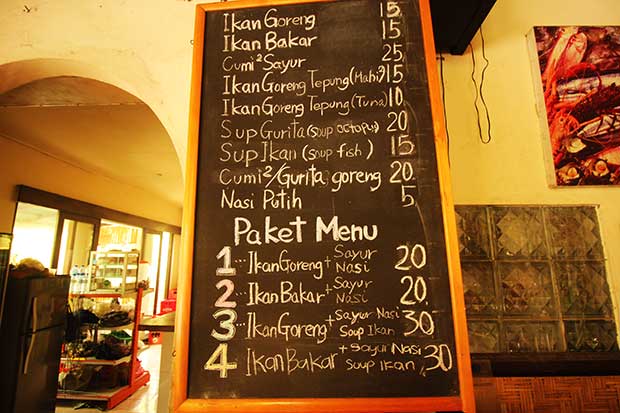 Ikan Goreng 15
Ikan Bakar 15
Cumi² Sayur 25
Ikan Goreng Tepung (Mahi²) 15
Ikan Goreng Tepung (Tuna) 10
Sup Gurita (soup octopus) 20
Sup Ikan (soup fish) 15
Cumi²/Gurita goreng 20
Nasi Putih 5
Paket Menu
1 ... Ikan Goreng + Sayur Nasi 20
2 ... Ikan Bakar + Sayur Nasi 20
3 ... Ikan Goreng + Sayur Nasi Soup Ikan 30
4 Ikan Bakar + Sayur Nasi Soup Ikan 30